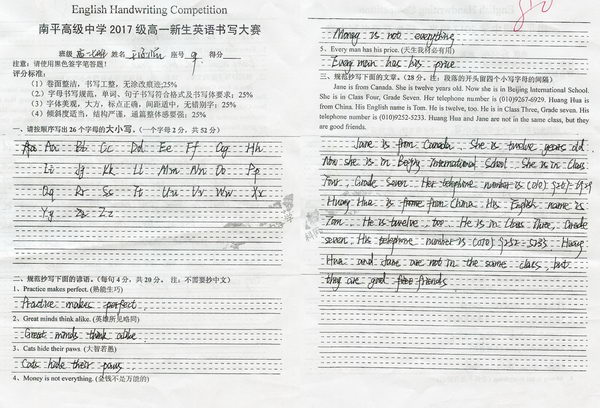 English Handwriting Competition
南平高级中学 2017 级高一新生英语书写大赛
班级 姓名 座号 9 得分
注意：请使用黑色签字笔答题！
评分标准：
（1）卷面整洁，书写工整，无涂改痕迹;25%
（2）字母书写规范，单词、句子书写符合格式及书写体要求；25%
（3）字体美观，大方，标点正确，间距适中，无错别字；25%
（4）倾斜度适当，结构严谨，通篇整体感要强；25%
一、请按顺序写出 26 个字母的大小写.（一个字母 2 分，共 52 分）
Aa Bb Cc Dd Ee Ff Cg Hh
Ii Jj Kk Ll Mm Nn Oo Pp
Qq Rr Ss Tt Uu Vv Ww Xx
Yy Zz
二、规范抄写下面的谚语。（每句 4 分，共 20 分。 注：不需要抄中文）
1、Practice makes perfect. (熟能生巧)
Practice makes perfect.
2、Great minds think alike. (英雄所见略同)
Great minds think alike.
3、Cats hide their paws. (大智若愚)
Cats hide their paws.
4、Money is not everything. (金钱不是万能的)
Money is not everything
5、Every man has his price. (天生我材必有用)
Every man has his price
三、规范抄写下面的文章。（28 分。注：段落的开头留四个小写字母的间隔）
Jane is from Canada. She is twelve years old. Now she is in Beijing International School.
She is in Class Four, Grade Seven. Her telephone number is (010)9267-6929. Huang Hua is
from China. His English name is Tom. He is twelve, too. He is in Class Three, Grade seven. His
telephone number is (010)9252-5233. Huang Hua and Jane are not in the same class, but they
are good friends.
Jane is from Canada. She is twelve years old.
Now she is in Beijing International School. She is in Class
Four, Grade Seven. Her telephone number is (010) 9267-6929
Huang Hua is from China. His English name is
Tom. He is twelve, too. He is in Class Three, Grade
seven. His telephone number is (010) 9252-5233. Huang
Hua and Jane are not in the same class, but
they are good friends.